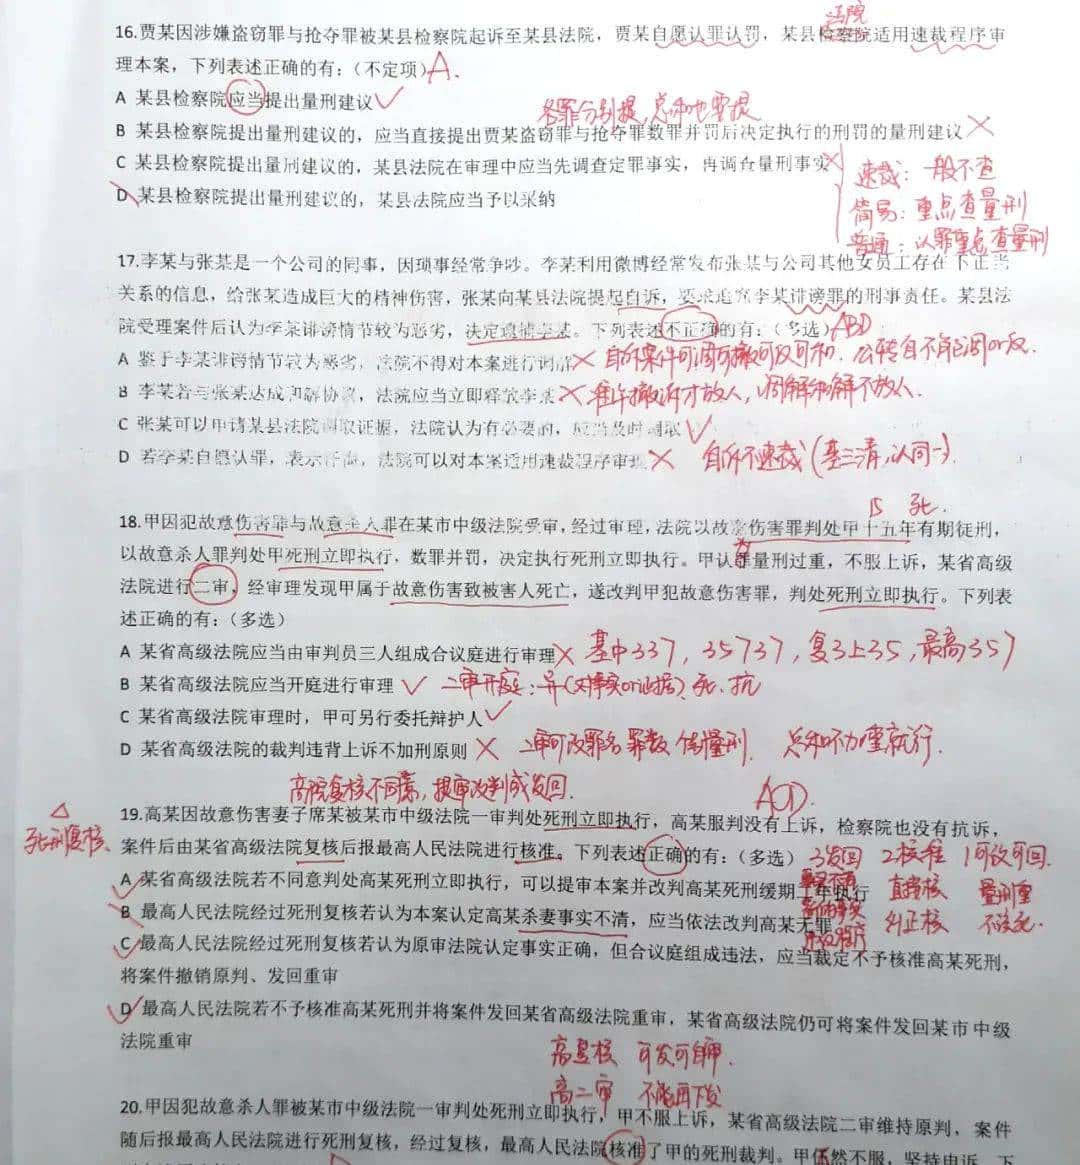 法院
16.贾某因涉嫌盗窃罪与抢夺罪被某县检察院起诉至某县法院，贾某自愿认罪认罚，某县检察院适用速裁程序审
理本案，下列表述正确的有：（不定项）A.
A 某县检察院应当提出量刑建议✓
各罪分别提,总和也要提
B 某县检察院提出量刑建议的，应当直接提出贾某盗窃罪与抢夺罪数罪并罚后决定执行的刑罚的量刑建议 ×
C 某县检察院提出量刑建议的，某县法院在审理中应当先调查定罪事实，再调查量刑事实×
速裁：一般不查
D 某县检察院提出量刑建议的，某县法院应当予以采纳
简易：重点查量刑
普通：认罪重点查量刑
17.李某与张某是一个公司的同事，因琐事经常争吵。李某利用微博经常发布张某与公司其他女员工存在不正当
关系的信息，给张某造成巨大的精神伤害，张某向某县法院提起自诉，要求追究李某诽谤罪的刑事责任。某县法
院受理案件后认为李某诽谤情节较为恶劣，决定逮捕李某。下列表述不正确的有：（多选）ABD
A 鉴于李某诽谤情节较为恶劣，法院不得对本案进行调解× 自诉案件可调可撤可反可和，公转自不能调or反.
B 李某若与张某达成和解协议，法院应当立即释放李某× 准许撤诉才放人，调解和解不放人.
C 张某可以申请某县法院调取证据，法院认为有必要的，应当及时调取✓
D 若李某自愿认罪，表示忏悔，法院可以对本案适用速裁程序审理× 自诉不速裁(基三清,认同一).
15 死.
18.甲因犯故意伤害罪与故意杀人罪在某市中级法院受审，经过审理，法院以故意伤害罪判处甲十五年有期徒刑，
以故意杀人罪判处甲死刑立即执行，数罪并罚，决定执行死刑立即执行。甲认罪量刑过重，不服上诉，某省高级
法院进行二审，经审理发现甲属于故意伤害致被害人死亡，遂改判甲犯故意伤害罪，判处死刑立即执行。下列表
述正确的有：（多选）
A 某省高级法院应当由审判员三人组成合议庭进行审理× 基中337，35737，复3上35，最高357
B 某省高级法院应当开庭进行审理 ✓ 二审开庭：异(对事实or证据)、死、抗
C 某省高级法院审理时，甲可另行委托辩护人✓
D 某省高级法院的裁判违背上诉不加刑原则 × 二审可改罪名 罪数 量刑. 总和不加重就行.
高院复核不同意，提审改判或发回.
ACD.
19.高某因故意伤害妻子席某被某市中级法院一审判处死刑立即执行，高某服判没有上诉，检察院也没有抗诉，
△
死刑复核、
案件后由某省高级法院复核后报最高人民法院进行核准。下列表述正确的有：（多选） 3发回 2核准 1可改可回.
A 某省高级法院若不同意判处高某死刑立即执行，可以提审本案并改判高某死刑缓期二年执行 直接核 量刑重
B 最高人民法院经过死刑复核若认为本案认定高某杀妻事实不清，应当依法改判高某无罪 纠正核 不该死.
C 最高人民法院经过死刑复核若认为原审法院认定事实正确，但合议庭组成违法，应当裁定不予核准高某死刑，
将案件撤销原判、发回重审
D 最高人民法院若不予核准高某死刑并将案件发回某省高级法院重审，某省高级法院仍可将案件发回某市中级
法院重审
高复核 可发可自审.
高二审 不能再下发
20.甲因犯故意杀人罪被某市中级法院一审判处死刑立即执行，甲不服上诉，某省高级法院二审维持原判，案件
随后报最高人民法院进行死刑复核，经过复核，最高人民法院核准了甲的死刑裁判。甲仍然不服，坚持申诉，下